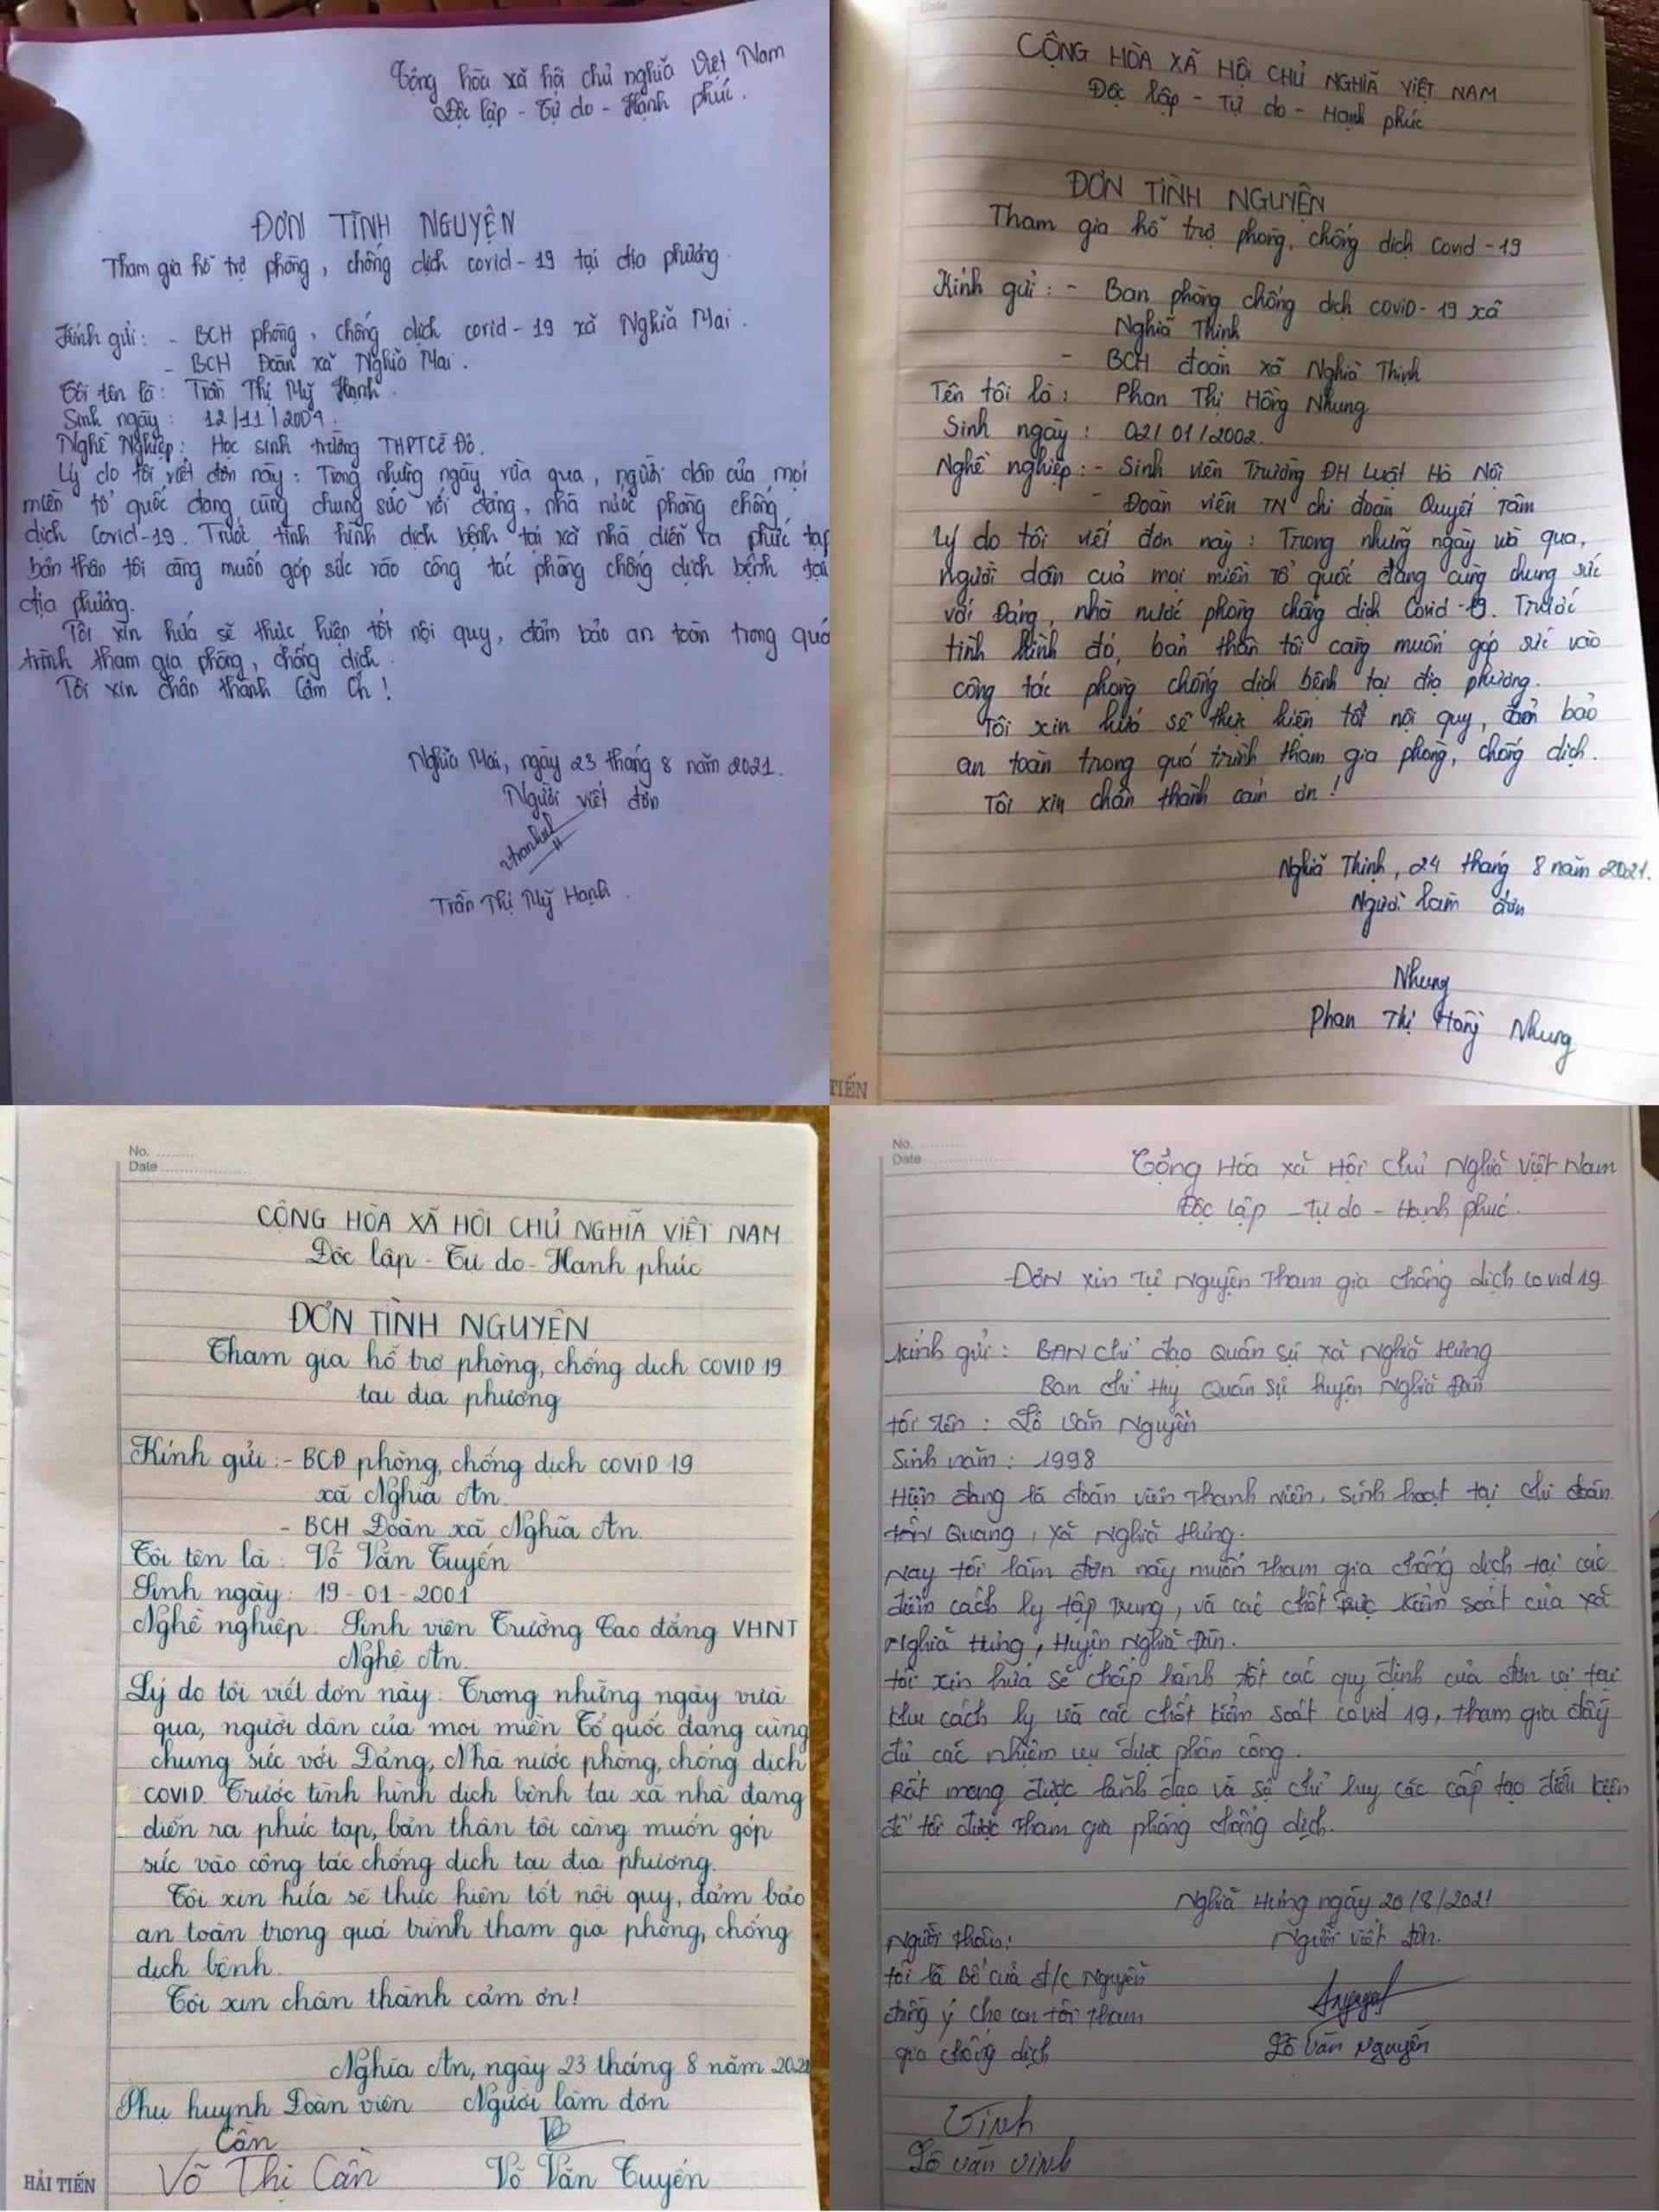 Cộng hòa xã hội chủ nghĩa Việt Nam
Độc lập - Tự do - Hạnh phúc.
ĐƠN TÌNH NGUYỆN
Tham gia hỗ trợ phòng, chống dịch covid-19 tại địa phương.
Kính gửi: - BCH phòng, chống dịch covid-19 xã Nghĩa Mai.
- BCH Đoàn xã Nghĩa Mai.
Tôi tên là: Trần Thị Mỹ Hạnh.
Sinh ngày: 12/11/2004.
Nghề Nghiệp: Học sinh trường THPT Cờ Đỏ.
Lý do tôi viết đơn này: Trong những ngày vừa qua, người dân của mọi
miền tổ quốc đang cùng chung sức với đảng, nhà nước phòng chống
dịch Covid-19. Trước tình hình dịch bệnh tại xã nhà diễn ra phức tạp
bản thân tôi càng muốn góp sức vào công tác phòng chống dịch bệnh tại
địa phương.
Tôi xin hứa sẽ thực hiện tốt nội quy, đảm bảo an toàn trong quá
trình tham gia phòng, chống dịch.
Tôi xin chân thành cảm ơn!
Nghĩa Mai, ngày 23 tháng 8 năm 2021.
Người viết đơn
Trần Thị Mỹ Hạnh.
Date
CỘNG HÒA XÃ HỘI CHỦ NGHĨA VIỆT NAM
Độc lập - Tự do - Hạnh phúc
ĐƠN TÌNH NGUYỆN
Tham gia hỗ trợ phòng, chống dịch Covid-19
Kính gửi: - Ban phòng chống dịch COVID-19 xã
Nghĩa Thịnh
- BCH đoàn xã Nghĩa Thịnh
Tên tôi là: Phan Thị Hồng Nhung
Sinh ngày: 02/01/2002.
Nghề nghiệp: - Sinh viên Trường ĐH Luật Hà Nội
- Đoàn viên TN chi đoàn Quyết Tâm
Lý do tôi viết đơn này: Trong những ngày vừa qua,
người dân của mọi miền Tổ quốc đang cùng chung sức
với Đảng, nhà nước phòng chống dịch Covid-19. Trước
tình hình đó, bản thân tôi càng muốn góp sức vào
công tác phòng chống dịch bệnh tại địa phương.
Tôi xin hứa sẽ thực hiện tốt nội quy, đảm bảo
an toàn trong quá trình tham gia phòng, chống dịch.
Tôi xin chân thành cảm ơn!
Nghĩa Thịnh, 24 tháng 8 năm 2021.
Người làm đơn
Nhung
Phan Thị Hồng Nhung
TIẾN
No.
Date
CỘNG HÒA XÃ HỘI CHỦ NGHĨA VIỆT NAM
Độc lập - Tự do - Hạnh phúc
ĐƠN TÌNH NGUYỆN
Tham gia hỗ trợ phòng, chống dịch COVID 19
tại địa phương
Kính gửi: - BCĐ phòng, chống dịch COVID 19
xã Nghĩa An
- BCH Đoàn xã Nghĩa An.
Tôi tên là: Võ Văn Tuyến
Sinh ngày: 19-01-2001
Nghề nghiệp: Sinh viên Trường Cao đẳng VHNT
Nghệ An.
Lý do tôi viết đơn này: Trong những ngày vừa
qua, người dân của mọi miền Tổ quốc đang cùng
chung sức với Đảng, Nhà nước phòng, chống dịch
COVID. Trước tình hình dịch bệnh tại xã nhà đang
diễn ra phức tạp, bản thân tôi càng muốn góp
sức vào công tác chống dịch tại địa phương.
Tôi xin hứa sẽ thực hiện tốt nội quy, đảm bảo
an toàn trong quá trình tham gia phòng, chống
dịch bệnh.
Tôi xin chân thành cảm ơn!
Nghĩa An, ngày 23 tháng 8 năm 2021
Phụ huynh Đoàn viên Người làm đơn
Cần
Võ Thị Cần Võ Văn Tuyến
HẢI TIẾN
No.
Date
Cộng Hòa xã Hội chủ Nghĩa Việt Nam
Độc lập - Tự do - Hạnh phúc.
Đơn xin Tự Nguyện Tham gia chống dịch covid 19
Kính gửi: BAN chỉ đạo Quân sự xã Nghĩa Hưng
Ban chỉ Huy Quân sự huyện Nghĩa Đàn
tôi tên: Lô Văn Nguyên
Sinh năm: 1998
Hiện đang là đoàn viên Thanh niên, Sinh hoạt tại chi đoàn
tân Quang, xã Nghĩa Hưng.
Nay tôi làm đơn này muốn Tham gia chống dịch tại các
điểm cách ly tập Trung, và các chốt trực kiểm soát của xã
Nghĩa Hưng, Huyện Nghĩa Đàn.
tôi xin hứa sẽ chấp hành tốt các quy định của đơn vị tại
khu cách ly và các chốt kiểm soát covid 19, tham gia đầy
đủ các nhiệm vụ được phân công.
Rất mong được lãnh đạo và sự chỉ huy các cấp tạo điều kiện
để tôi được Tham gia phòng chống dịch.
Nghĩa Hưng ngày 20/8/2021
Người thân: Người viết đơn.
tôi là Bố của đ/c Nguyên
đồng ý cho con tôi Tham
gia chống dịch Lô Văn Nguyên
Vinh
Lô văn vinh